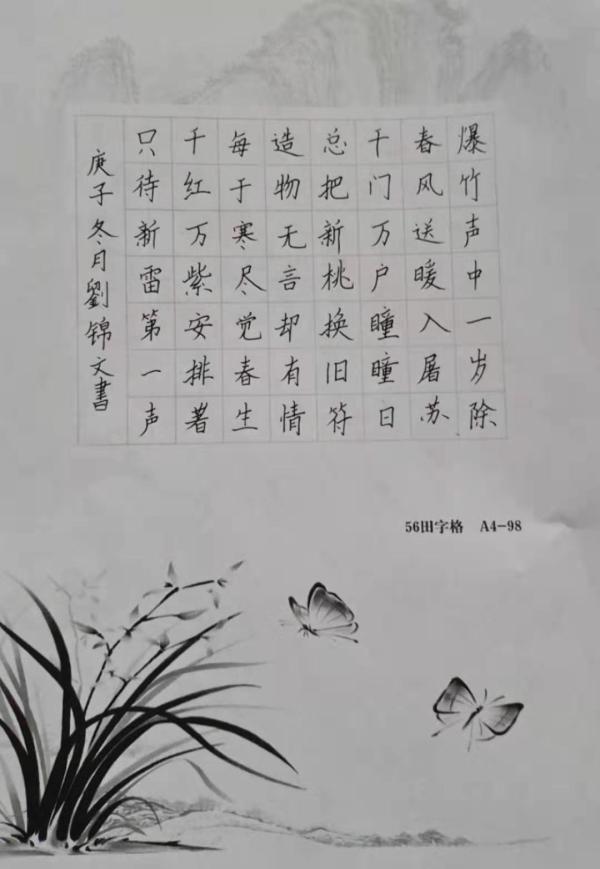 爆竹声中一岁除
春风送暖入屠苏
千门万户瞳瞳日
总把新桃换旧符
造物无言却有情
每于寒尽觉春生
千红万紫安排著
只待新雷第一声
庚子冬月劉锦文書
56田字格 A4-98